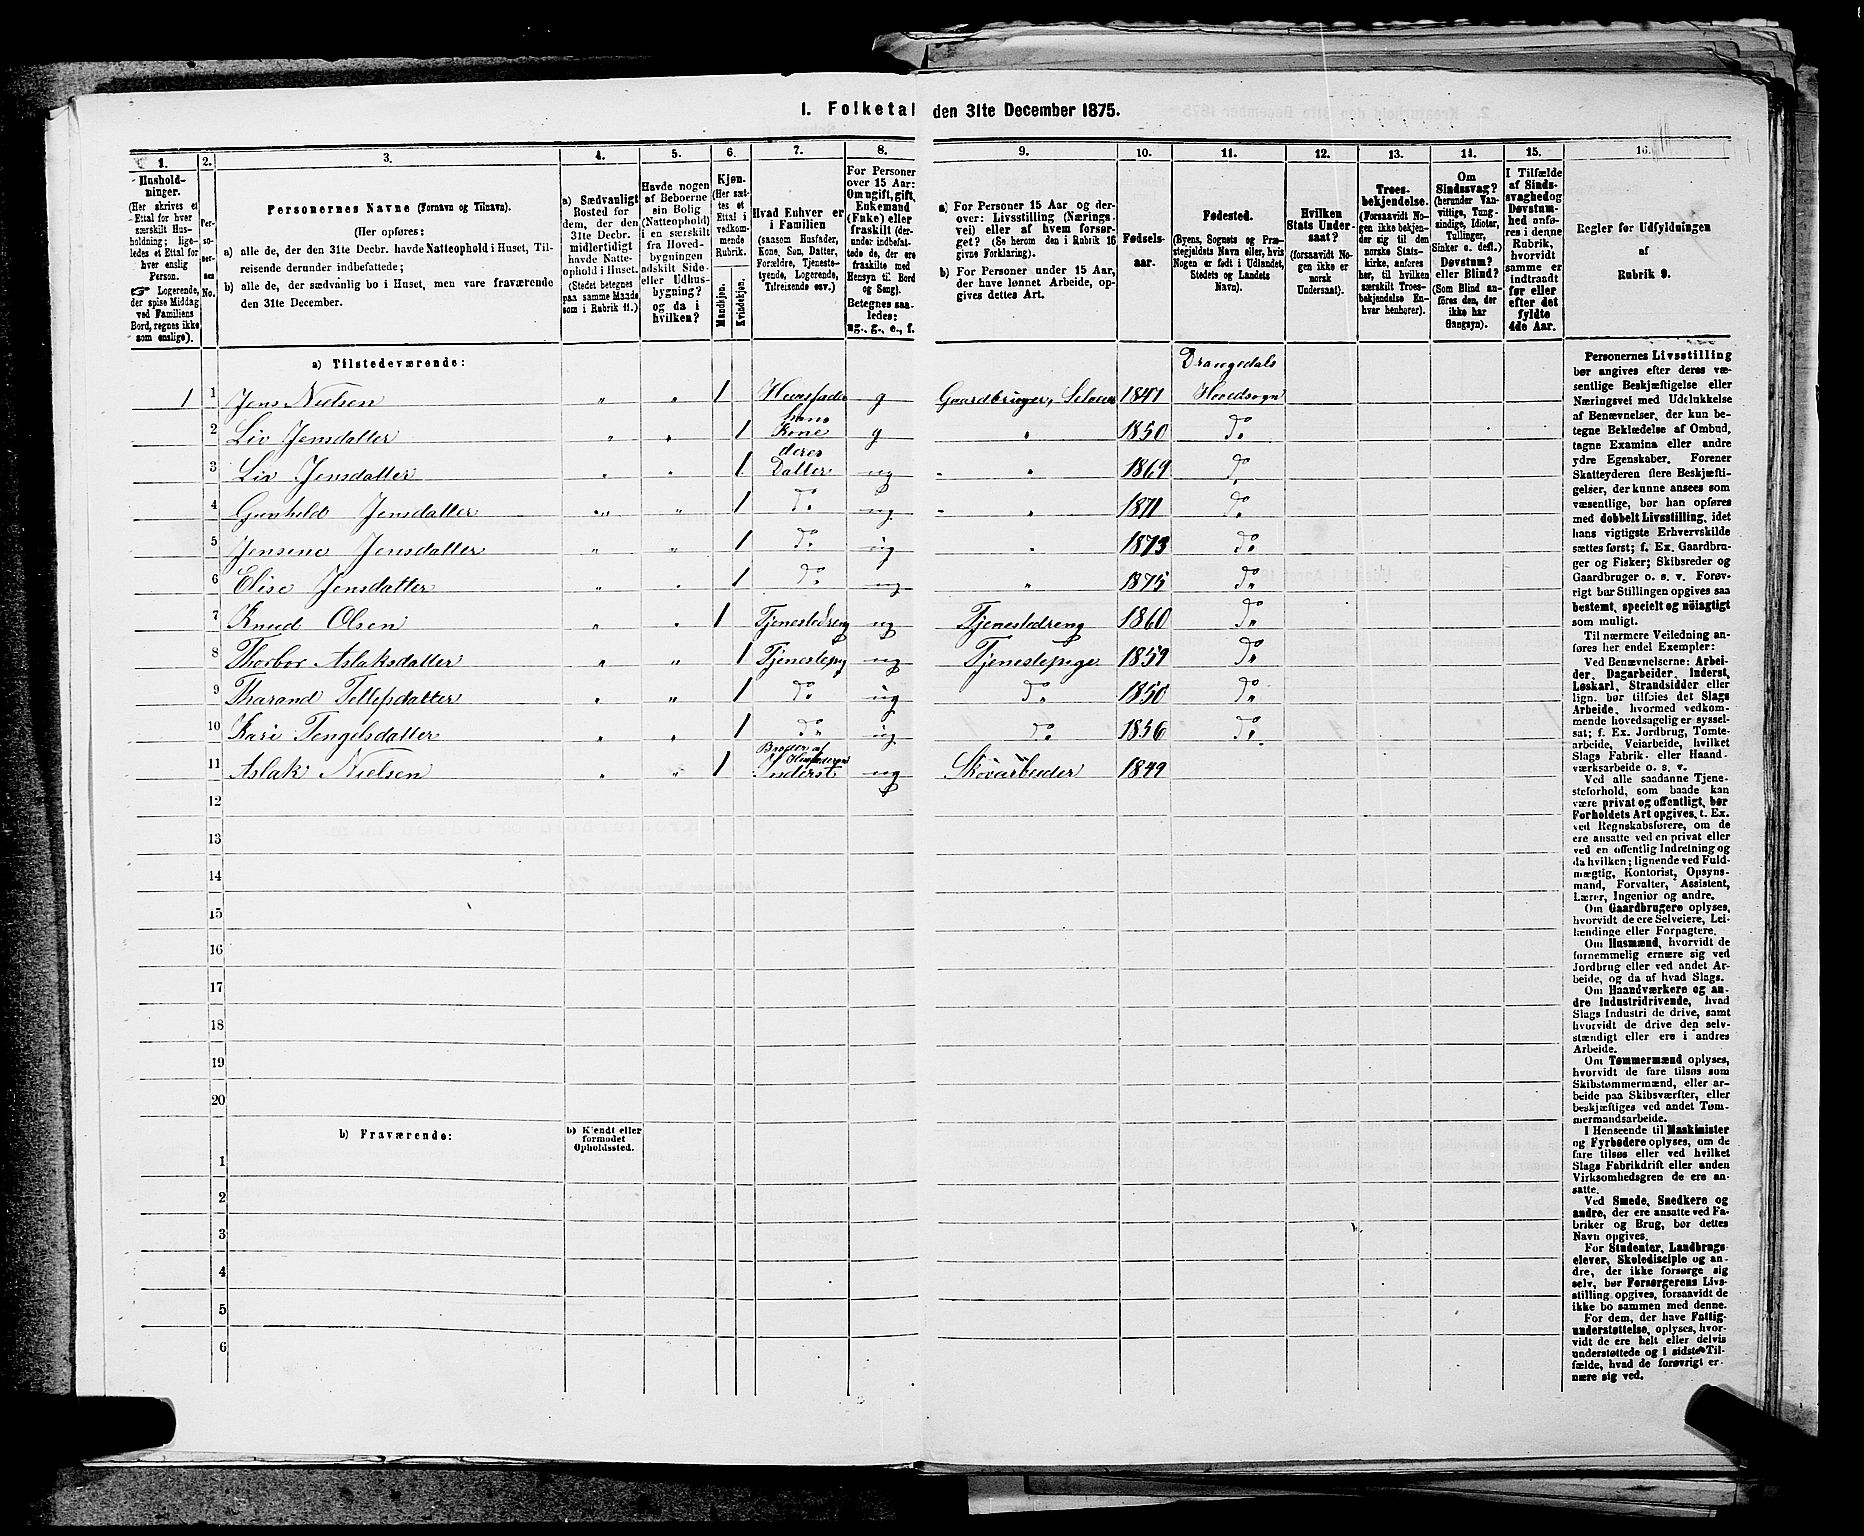 1. Folketal den 31te December 1875.
1. 2. 3. 4. 5. 6. 7. 8. 9. 10. 11. 12. 13. 14. 15. 16.
Husholdninger.
(Her skrives et
Ettal for hver
særskilt Husholdning;
ligeledes et Ettal for
hver enslig
Person.
Logerende,
der spise Middag
ved Familiens
Bord, regnes ikke
som enslige).
Personernes No.
Personernes Navne (Fornavn og Tilnavn).
(Her opføres:
a) alle de, der den 31te Decbr. havde Natteophold i Huset, Tilreisende derunder indbefattede;
b) alle de, der sædvanlig bo i Huset, men vare fraværende
den 31te December.
a) Sædvanligt
Bosted for
dem, der den
31te Decbr.
midlertidigt
havde Natteophold i Huset.
(Stedet betegnes
paa samme Maade
som i Rubrik 11.)
Havde nogen
af Beboerne
sin Bolig
(Natteophold)
i en særskilt
fra Hovedbygningen
adskilt Side-
eller Udhusbygning? og da i
hvilken?
Kjøn.
(Her sættes et
Ettal i
vedkommende
Rubrik.
Mandkjøn.
Kvindekjøn.
Hvad Enhver er
i Familien
(saasom Husfader,
Kone, Søn, Datter,
Forældre, Tjenestetyende, Logerende,
Tilreisende osv.)
For Personer
over 15 Aar:
Om ugift, gift,
Enkemand
(Enke) eller
fraskilt (derunder indbefattede de, der ere
fraskilte med
Hensyn til Bord
og Seng).
Betegnes saaledes:
ug., g., e., f.
a) For Personer 15 Aar og derover: Livsstilling (Næringsvei) eller af hvem forsørget? (Se herom den i Rubrik 16
givne Forklaring).
b) For Personer under 15 Aar,
der have lønnet Arbeide, opgives dettes Art.
Fødselsaar.
Fødested.
(Byens, Sognets og Præstegjeldets Navn eller, hvis
Nogen er født i Udlandet,
Stedets og Landets
Navn).
Hvilken
Stats Undersaat?
(forsaavidt Nogen ikke er
norsk
Undersaat).
Troesbekjendelse.
(Forsaavidt Nogen ikke bekjender sig til den
norske Statskirke, anføres
her, til hvilken
særskilt Troesbekjendelse Enhver henhører).
Om
Sindssvag?
(herunder Vanvittige, Tungsindige, Idioter,
Tullinger,
Sinker o. desl.)
Døvstum?
eller Blind?
(Som Blind anføres den, der
ikke har
Gangsyn).
I Tilfælde
af Sindssvaghed og
Døvstumhed anføres i denne
Rubrik,
hvorvidt
samme er
indtraadt
før eller
efter det
fyldte
4de Aar.
Regler for Udfyldningen
af
Rubrik 9.
a) Tilstedeværende:
Drangedals
1 1 Jens Nielsen " " 1 Huusfader g Gaardbruger, Selveier 1847 Hovedsogn
2 Liv Jensdatter " " 1 hans Kone g " 1850 Do
3 Liv Jensdatter " " 1 deres Datter ug " 1869 Do
4 Gunhild Jensdatter " " 1 Do ug " 1871 Do
5 Jensine Jensdatter " " 1 Do ug " 1873 Do
6 Elise Jensdatter " " 1 Do ug " 1875 Do
7 Knud Olsen " " 1 Tjenestedreng ug Tjenestedreng 1860 Do
8 Thorbor Aslaksdatter " " 1 Tjenestepig ug Tjenestepige 1859 Do
9 Tharand Tellefsdatter " " 1 Do ug Do 1850 Do
10 Kari Tengelsdatter " " 1 Do ug Do 1856 Do
11 Aslak Nielsen " " 1 Broder af Inderst ug Skovarbeider 1849
12
13
14
15
16
17
18
19
20
b) Fraværende:
b) Kjendt eller
formodet
Opholdssted.
1
2
3
4
5
6
Personernes Livsstilling
bør angives efter deres væsentlige Beskjæftigelse eller
Næringsvei med Udelukkelse
af Benævnelser, der kun betegne Beklædelse af Ombud,
tagne Examina eller andre
ydre Egenskaber. Forener
Skatteyderen flere Beskjæftigelser, der kunne ansees som
væsentlige, bør han opføres
med dobbelt Livsstilling, idet
hans vigtigste Erhvervskilde
sættes først; f. Ex. Gaardbruger og Fisker; Skibsreder og
Gaardbruger o. s. v. Forøvrigt bør Stillingen opgives saa
bestemt, specielt og nöiagtigt
som muligt.
Til nærmere Veiledning anføres her endel Exempler:
Ved Benævnelserne: Arbeider, Dagarbeider, Inderst,
Løskarl, Strandsidder eller
lign. bør tilføies det Slags
Arbeide, hvormed vedkommende hovedsagelig er sysselsat; f. Ex. Jordbrug, Tomtearbeide, Veiarbeide, hvilket
Slags Fabrik- eller Haandværksarbeide o. s. v.
Ved alle saadanne Tjenesteforhold, som baade kan
være privat og offentligt, bør
Forholdets Art opgives, t. Ex.
ved Regnskabsførere, om de
ere ansatte ved en privat eller
ved en offentlig Indretning og
da hvilken; lignende ved Fuldmægtig, Kontorist, Opsynsmand, Forvalter, Assistent,
Lærer, Ingeniør og andre.
Om Gaardbrugere oplyses,
hvorvidt de ere Selveiere, Leilændinge eller Forpagtere.
Om Husmænd, hvorvidt de
fornemmelig ernære sig ved
Jordbrug eller ved andet Arbeide, og da af hvad Slags.
Om Haandværkere og andre Industridrivende, hvad
Slags Industri de drive, samt
hvorvidt de drive den selvstændigt eller ere i andres
Arbeide.
Om Tømmermænd oplyses,
hvorvidt de fare tilsøs som
Skibstømmermænd, eller arbeide paa Skibsværfter, eller
beskjæftiges ved andet Tømmermandsarbeide.
I Henseende til Maskinister
og Fyrbødere oplyses, om de
fare tilsøs eller ved hvilket
Slags Fabrikdrift eller anden
Virksomhedsgren de ere ansatte.
Ved Smede, Snedkere og
andre, der ere ansatte ved Fabriker og Brug, bør dettes
Navn opgives.
For Studenter, Landbrugselever, Skoledisciple og andre, der ikke forsørge sig
selv, bør Forsørgerens Livsstilling opgives, forsaavidt de
ikke bo sammen med denne.
For dem, der have Fattigunderstøttelse, oplyses, hvorvidt de ere helt eller delvis
understøttede og i sidste Tilfælde, hvad de forøvrigt ernære sig ved.